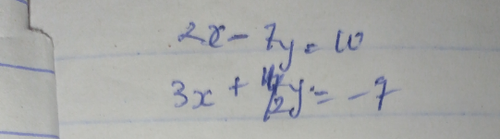 2x - 7y = 10
3x + y = -7